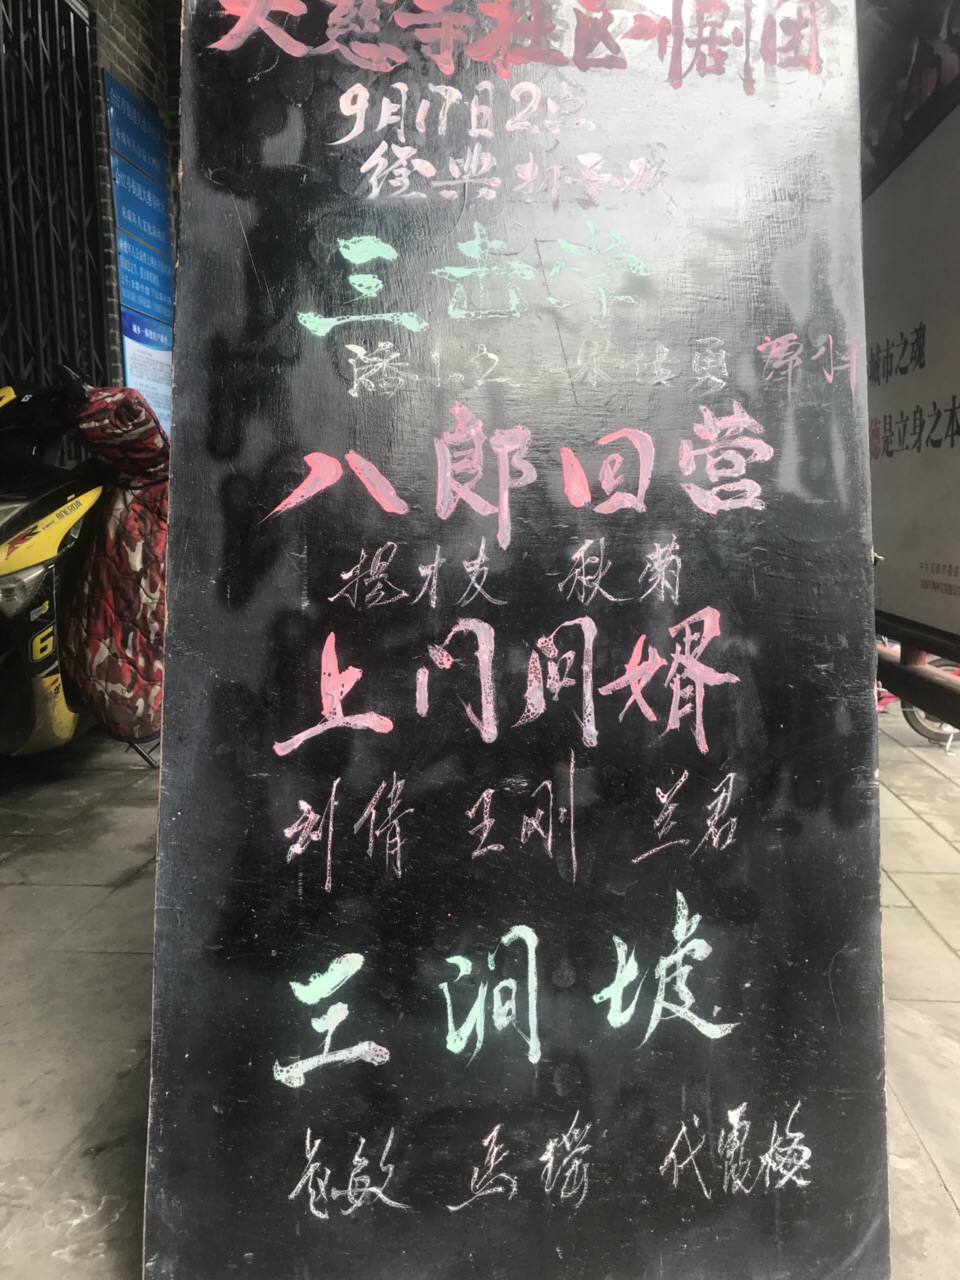 大慈寺社区川剧团
9月17日2点
经典折子戏
三击掌
潘 勇 谭
八郎回营
杨才友 秋菊
上门问婿
刘倩 王刚 兰君
三涧坡
敏 马 代霞梅
城市之魂
德是立身之本
6